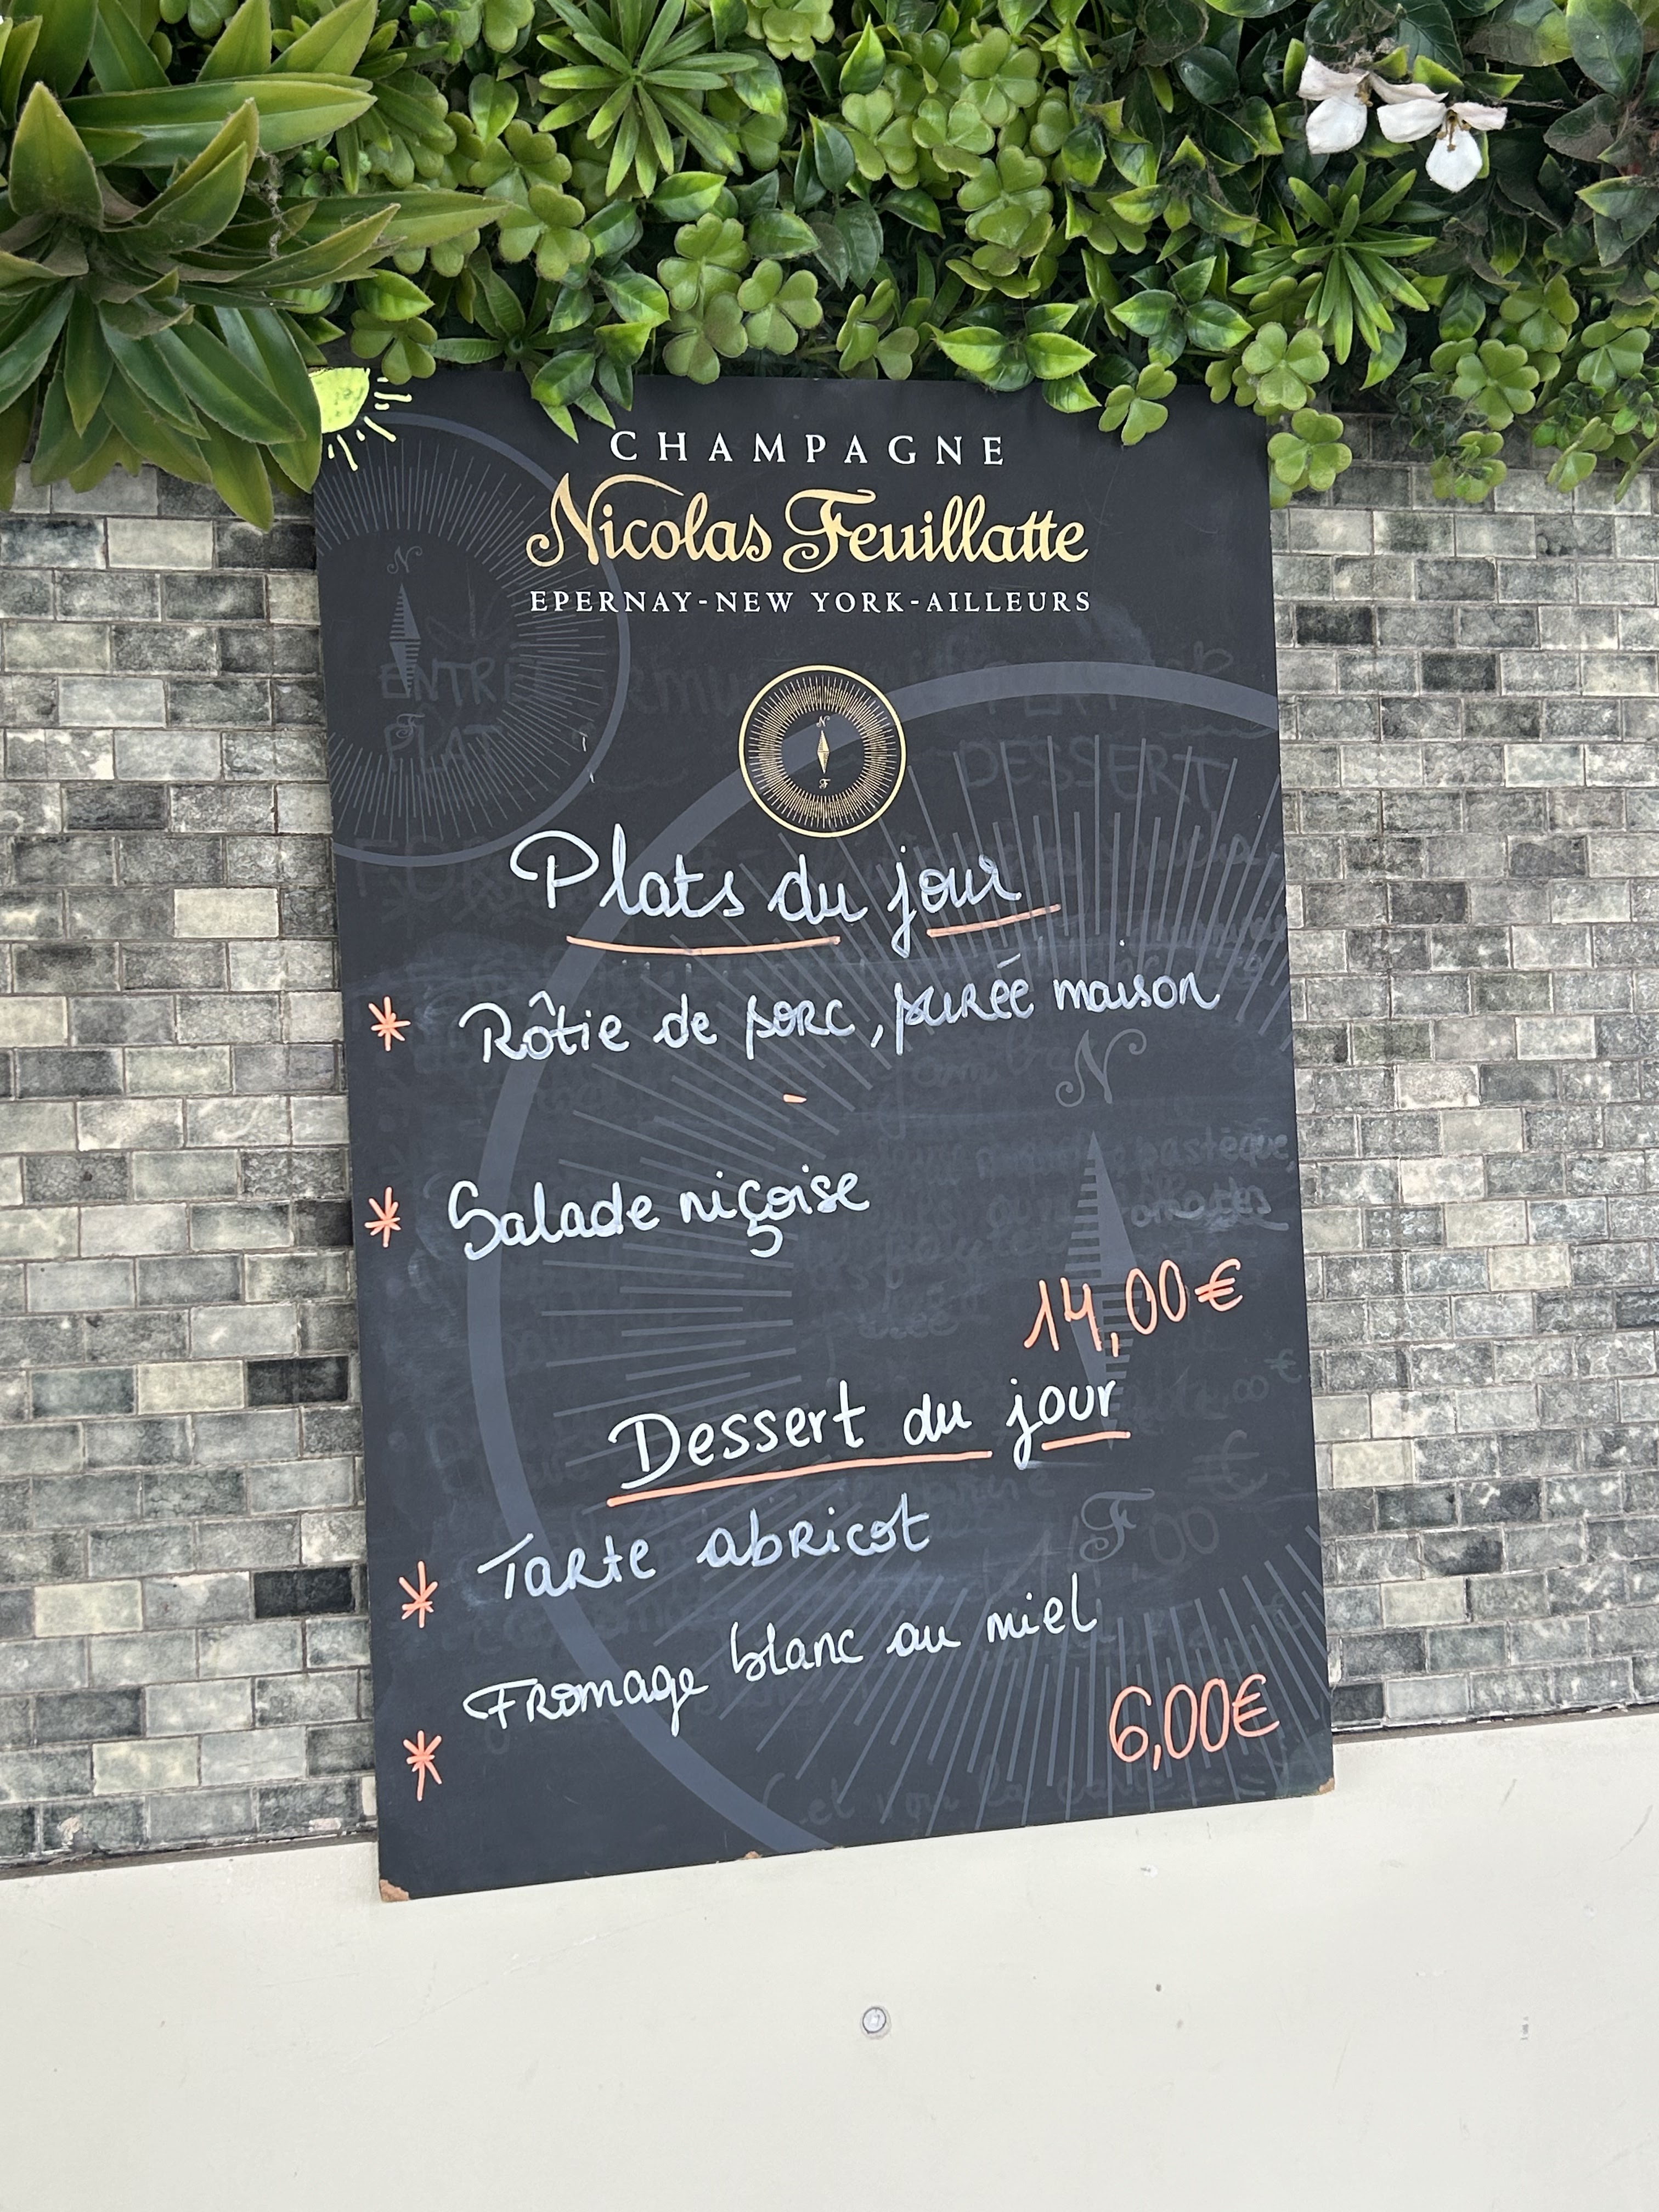 CHAMPAGNE
Nicolas Feuillatte
EPERNAY-NEW YORK-AILLEURS
N
N
F
ENTRÉE
F
PLAT
DESSERT
Plats du jour
* Rôtie de porc, purée maison
N
pastèque,
* Salade niçoise
tomates
14,00€
Dessert du jour
F
* Tarte abricot
Fromage blanc au miel
*
6,00€